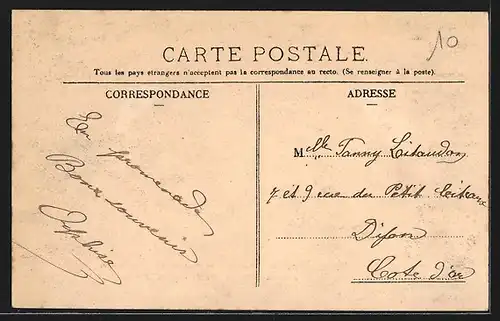 10
CARTE POSTALE.
Tous les pays étrangers n'acceptent pas la correspondance au recto. (Se renseigner à la poste).
CORRESPONDANCE
En promenade
Bons souvenirs
ADRESSE
Mlle Fanny
7 et 9 rue du Petit
Dijon
Cote d'or